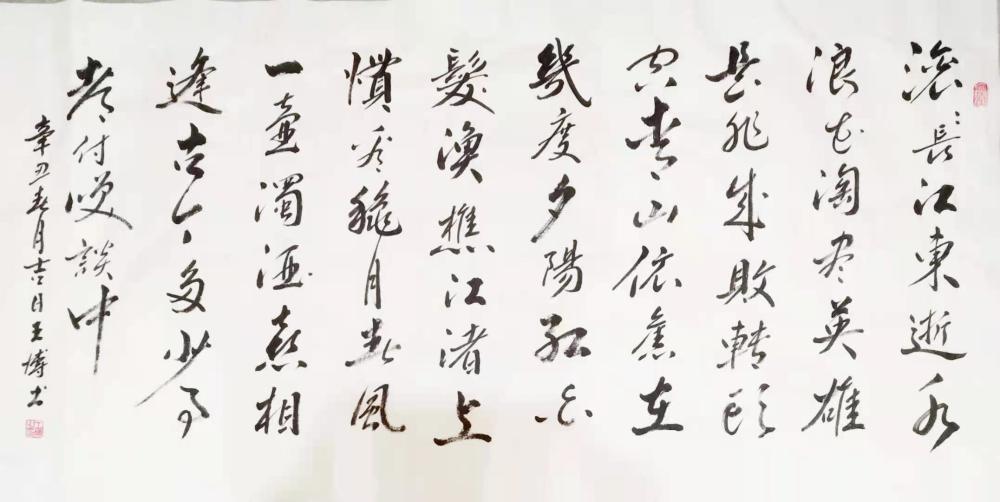 滚滚長江東逝水
浪花淘尽英雄
是非成敗轉頭
空青山依舊在
幾度夕陽紅白
髮漁樵江渚上
慣看秋月春風
一壺濁酒喜相
逢古今多少事
都付笑談中
辛丑春月吉日王博书